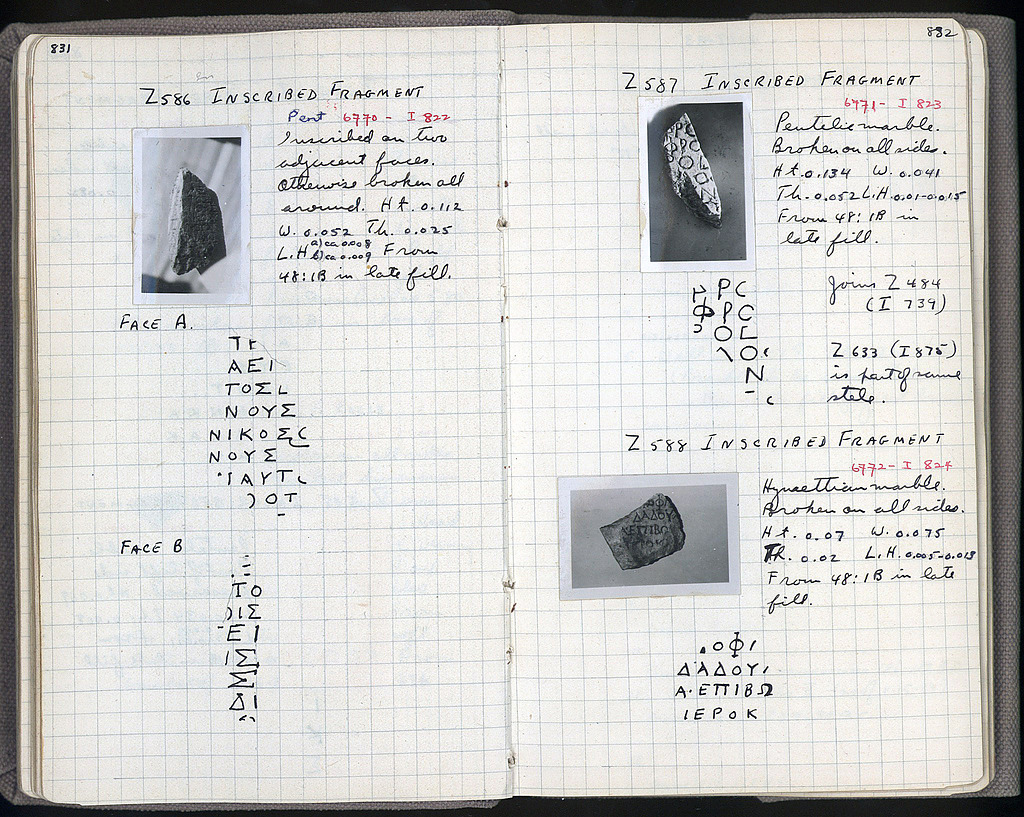 831
Z586 INSCRIBED FRAGMENT
Pent 6770 - I 822
Inscribed on two
adjacent faces.
Otherwise broken all
around. Ht. 0.112
W. 0.052 Th. 0.025
L.H a) ca 0.008 b) ca 0.009 From
48:1B in late fill.
FACE A.
ΑΕΙ
ΤΟΣ
ΝΟΥΣ
ΝΙΚΟΣ
ΝΟΥΣ
ΙΑΥΤ
ΟΤ
FACE B
ΤΟ
ΙΣ
ΕΙ
ΙΣ
Σ
ΔΙ
882
Z587 INSCRIBED FRAGMENT
6771 - I 823
Pentelic marble.
Broken on all sides.
Ht. 0.134 W. 0.041
Th. 0.052 L.H. 0.01-0.015
From 48:1B in
late fill.
ΡΟ
ΦΡΟ
Ο
Ο
Ν
Joins Z 484
(I 739)
Z 633 (I 875)
is part of same
stele.
Z 588 INSCRIBED FRAGMENT
6772 - I 824
Hymettian marble.
Broken on all sides.
Ht. 0.07 W. 0.075
Th. 0.02 L.H. 0.005-0.013
From 48:1B in late
fill.
.ΟΦΙ
ΔΑΔΟΥΙ
Α·ΕΠΙΒΩ
ΙΕΡΟΚ